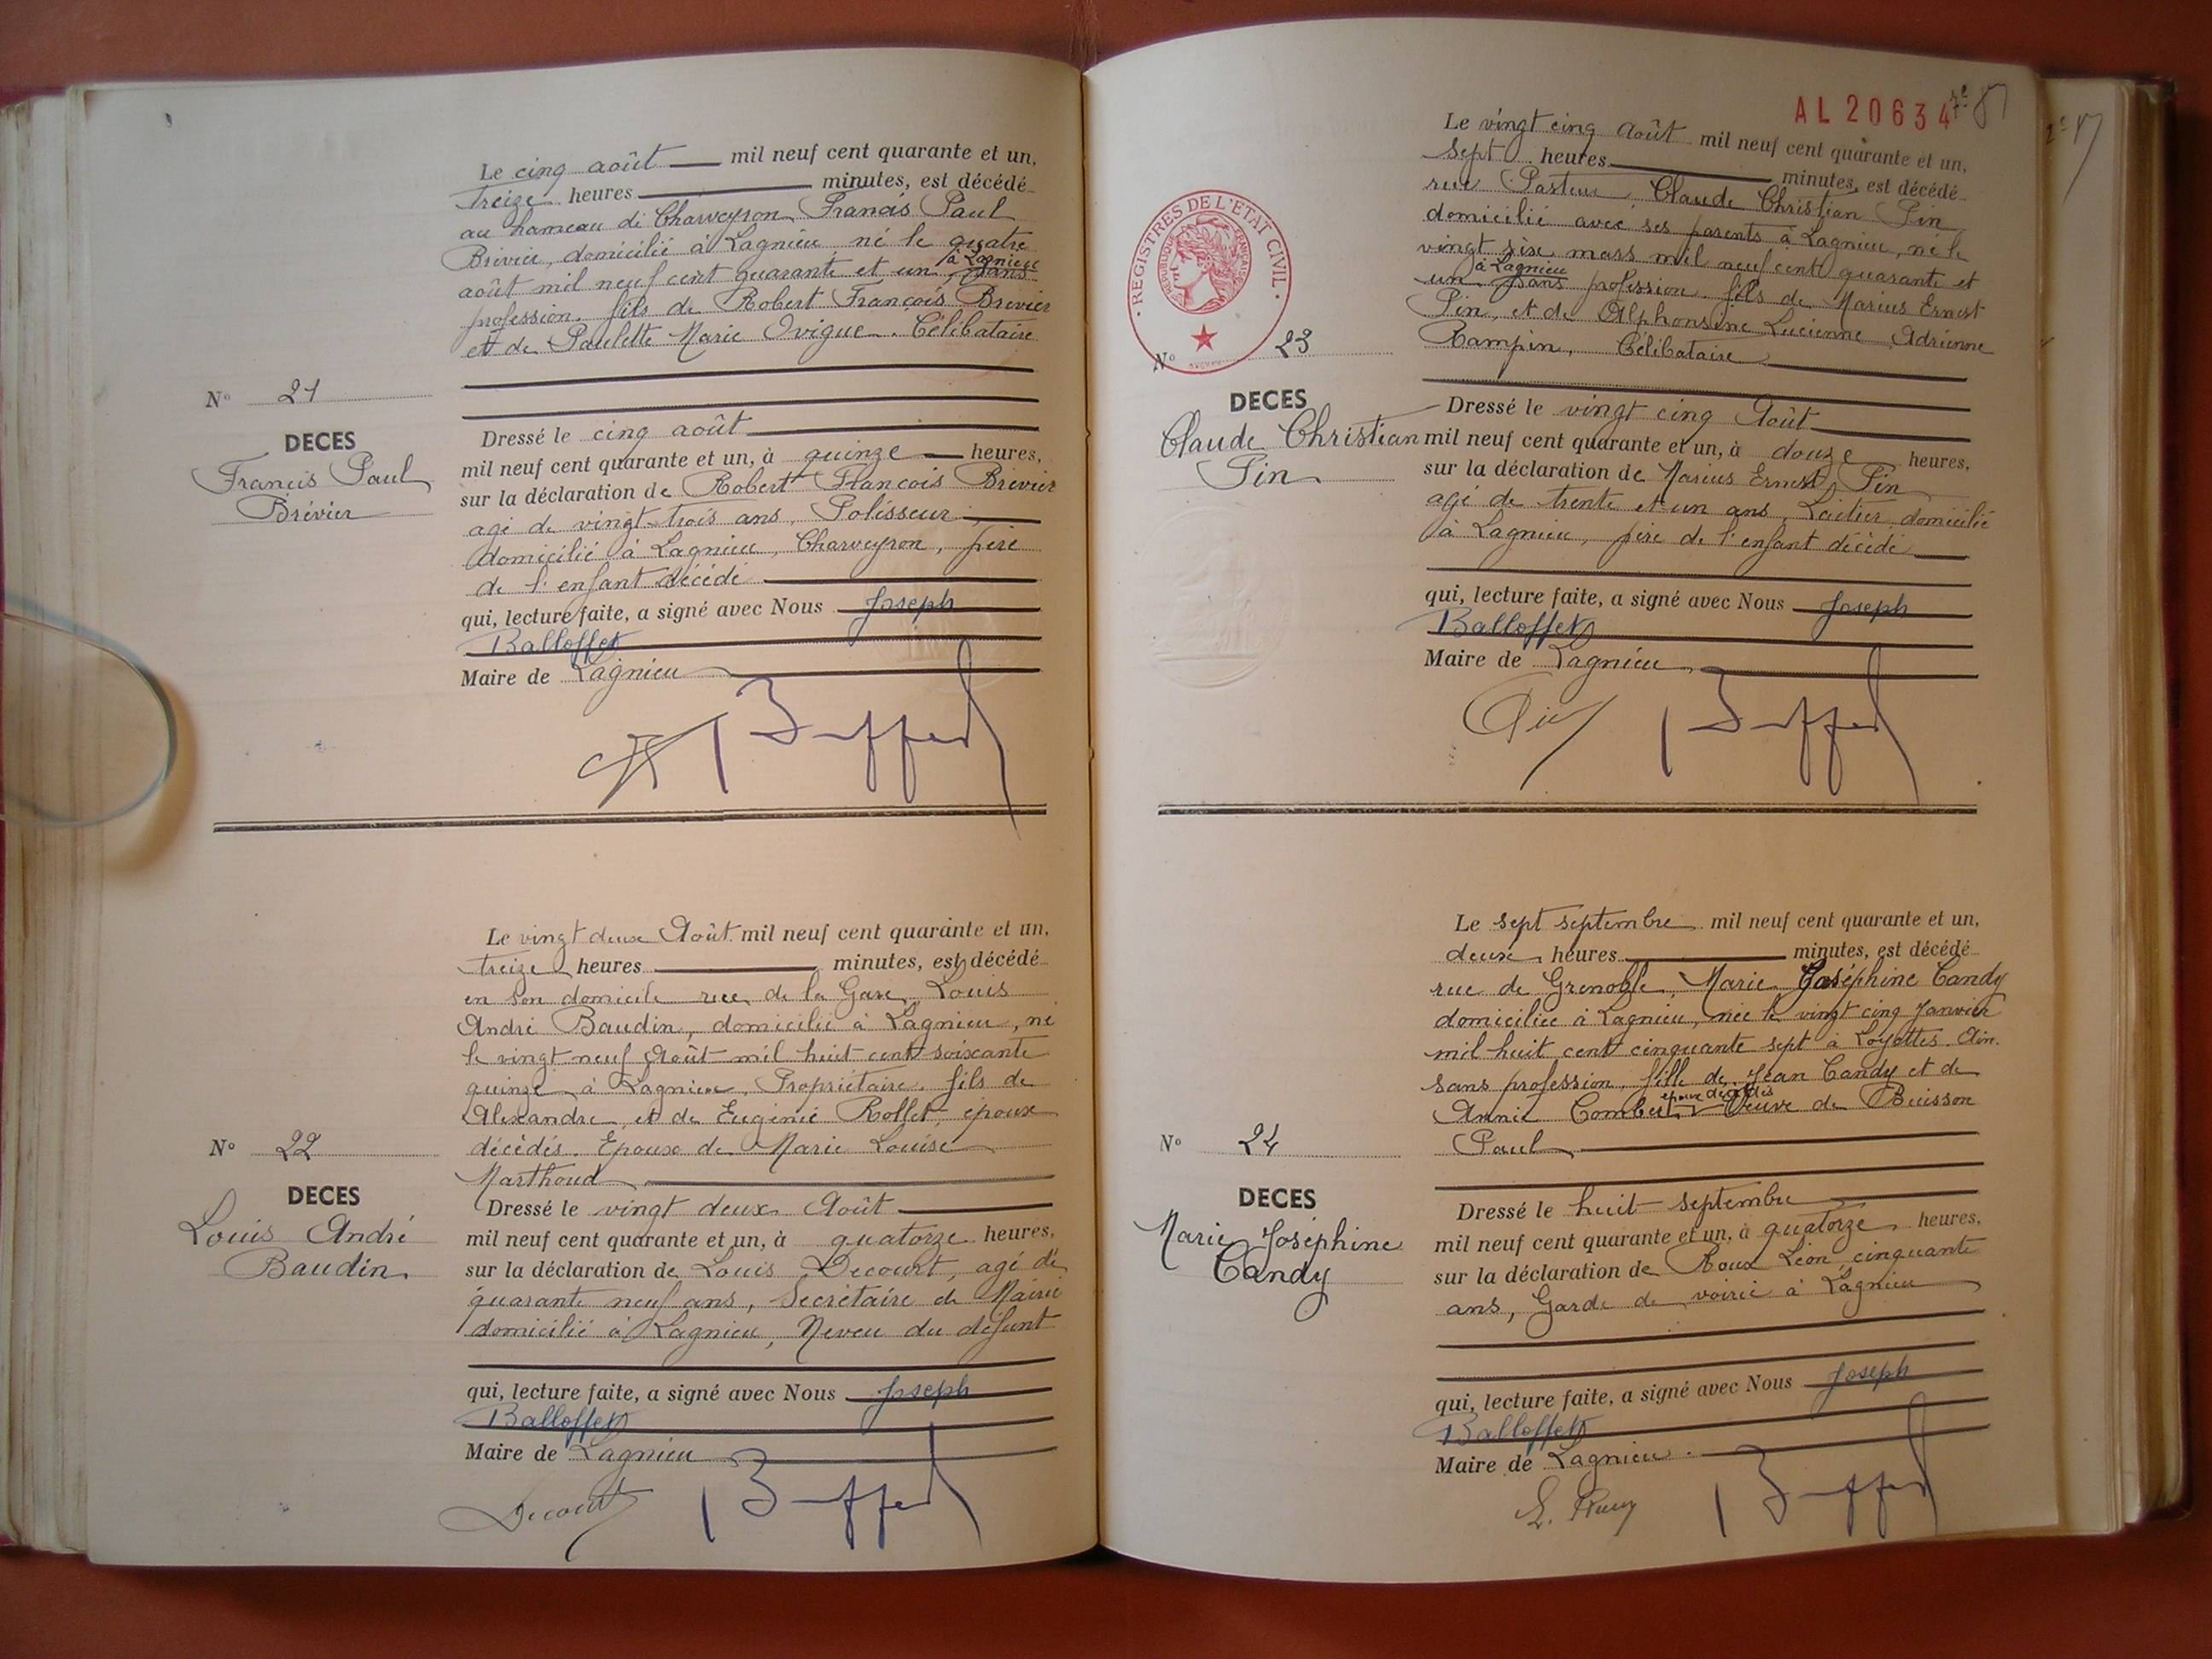 Le cinq août mil neuf cent quarante et un,
treize heures minutes, est décédé
au hameau de Charveyron Francis Paul
Brévier, domicilié à Lagnieu né le quatre
à Lagnieu
août mil neuf cent quarante et un, sans
profession. fils de Robert François Brévier
et de Paulette Marie Ovigue. Célibataire
N° 21
DECES
Francis Paul
Brévier
Dressé le cinq août
mil neuf cent quarante et un, à quinze heures,
sur la déclaration de Robert François Brévier
agé de vingt-trois ans, Polisseur
domicilié à Lagnieu, Charveyron, père
de l'enfant décédé
qui, lecture faite, a signé avec Nous Joseph
Balloffet
Maire de Lagnieu
Le vingt deux Août mil neuf cent quarante et un,
treize heures minutes, est décédé
en son domicile rue de la Gare, Louis
André Baudin, domicilié à Lagnieu, né
le vingt neuf Août mil huit cent soixante
quinze à Lagnieu, Propriétaire. fils de
Alexandre et de Eugénie Rollet, époux
décédés. Epoux de Marie Louise
Marthoud
N° 22
DECES
Louis André
Baudin
Dressé le vingt deux Août
mil neuf cent quarante et un, à quatorze heures,
sur la déclaration de Louis Decourt, agé de
quarante neuf ans, Secrétaire de Mairie
domicilié à Lagnieu, Neveu du défunt
qui, lecture faite, a signé avec Nous Joseph
Balloffet
Maire de Lagnieu
Decourt
AL 20634
Le vingt cinq Août mil neuf cent quarante et un,
sept heures minutes, est décédé
rue Pasteur, Claude Christian Pin
domicilié avec ses parents à Lagnieu, né le
vingt six mars mil neuf cent quarante et
à Lagnieu
un sans profession. fils de Marius Ernest
Pin, et de Alphonsine Lucienne Adrienne
Rampin, Célibataire
REGISTRES DE L'ETAT CIVIL
REPUBLIQUE FRANÇAISE
N° 23
DECES
Claude Christian
Pin
Dressé le vingt cinq Août
mil neuf cent quarante et un, à douze heures,
sur la déclaration de Marius Ernest Pin
agé de trente et un ans, Laitier, domicilié
à Lagnieu, père de l'enfant décédé
qui, lecture faite, a signé avec Nous Joseph
Balloffet
Maire de Lagnieu
Pin
Le sept septembre mil neuf cent quarante et un,
deux heures minutes, est décédé
rue de Grenoble, Marie Joséphine Candy
domiciliée à Lagnieu, née le vingt cinq Janvier
mil huit cent cinquante sept à Loyettes. Ain.
sans profession, fille de Jean Candy et de
époux décédés
Annie Combet, Veuve de Buisson
Paul
N° 24
DECES
Marie Joséphine
Candy
Dressé le huit septembre
mil neuf cent quarante et un, à quatorze heures,
sur la déclaration de Roux Léon, cinquante
ans, Garde de voirie à Lagnieu
qui, lecture faite, a signé avec Nous Joseph
Balloffet
Maire de Lagnieu